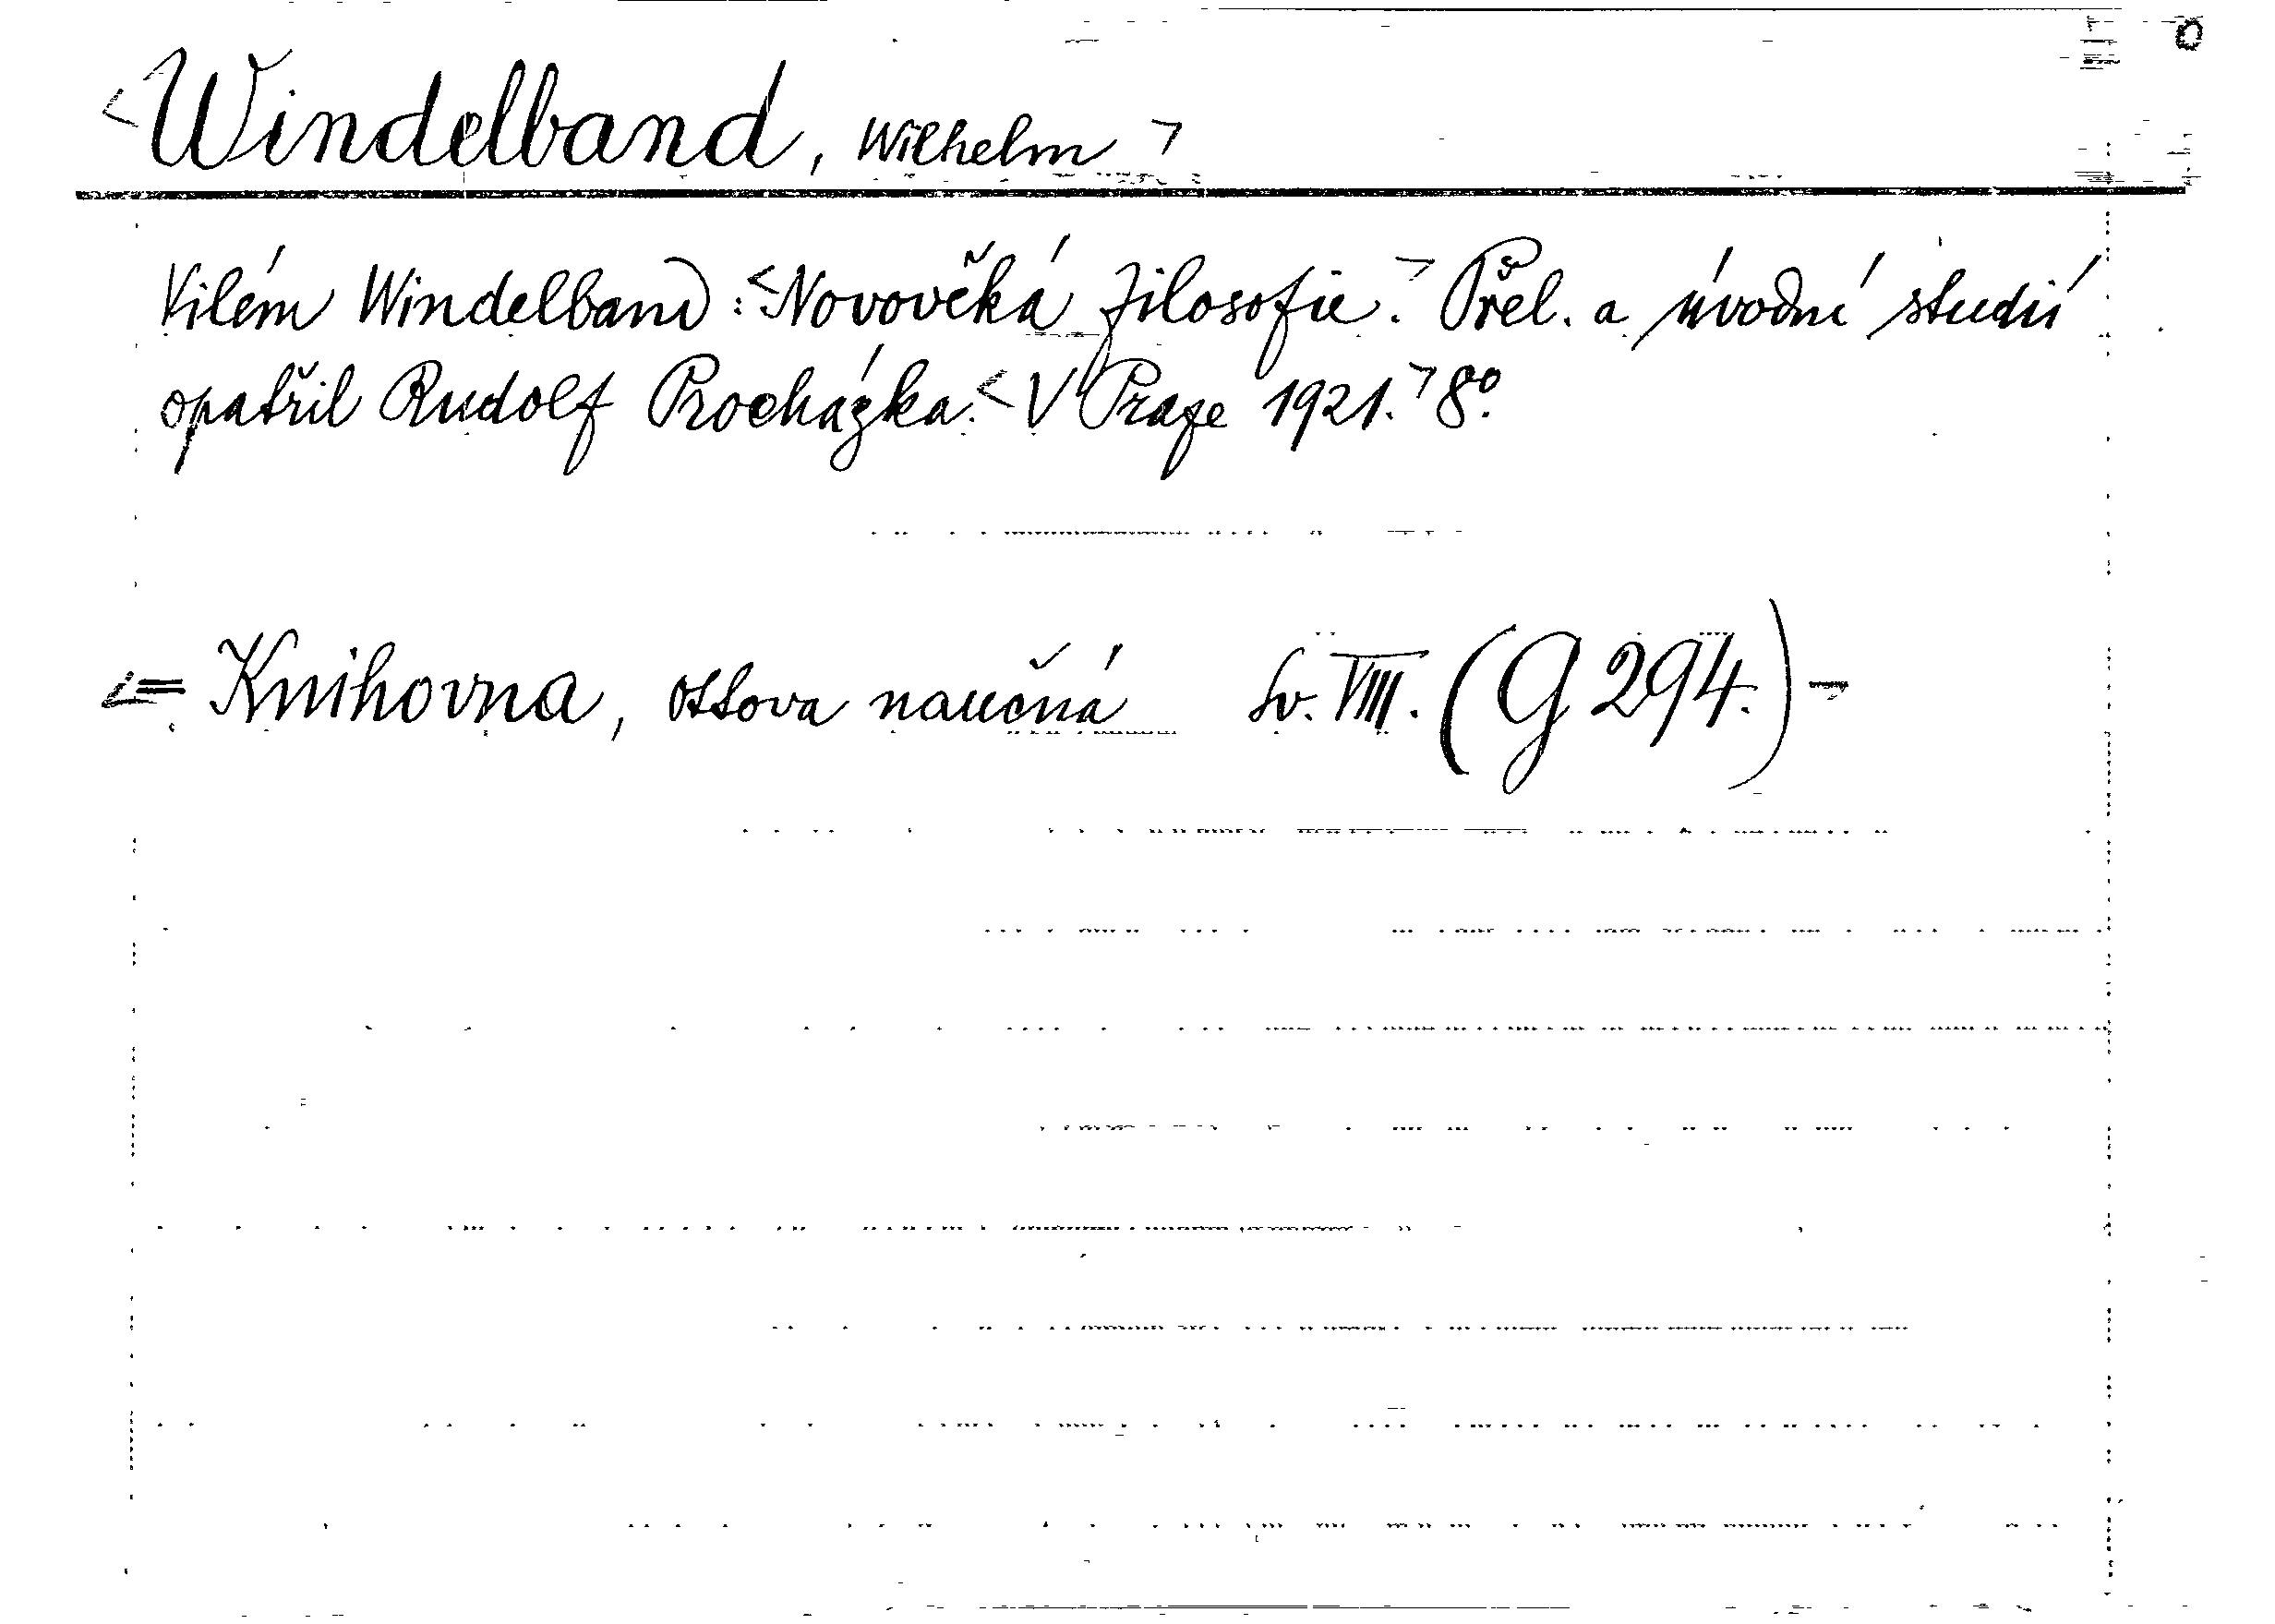 <Windelband, Wilhelm>
Vilém Windelband: <Novověká filosofie.> Přel. a úvodní studií
opatřil Rudolf Procházka. <V Praze 1921.> 8º.
<= Knihovna, Ottova naučná Sv. VIII. (G 294.) -